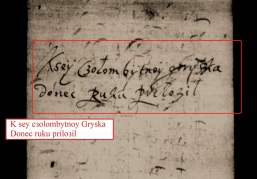 Ksey Czołombytnoy Gryska
donec Ruka Prilozil
K sey cзolombytnoy Gryska
Donec ruku priloзil